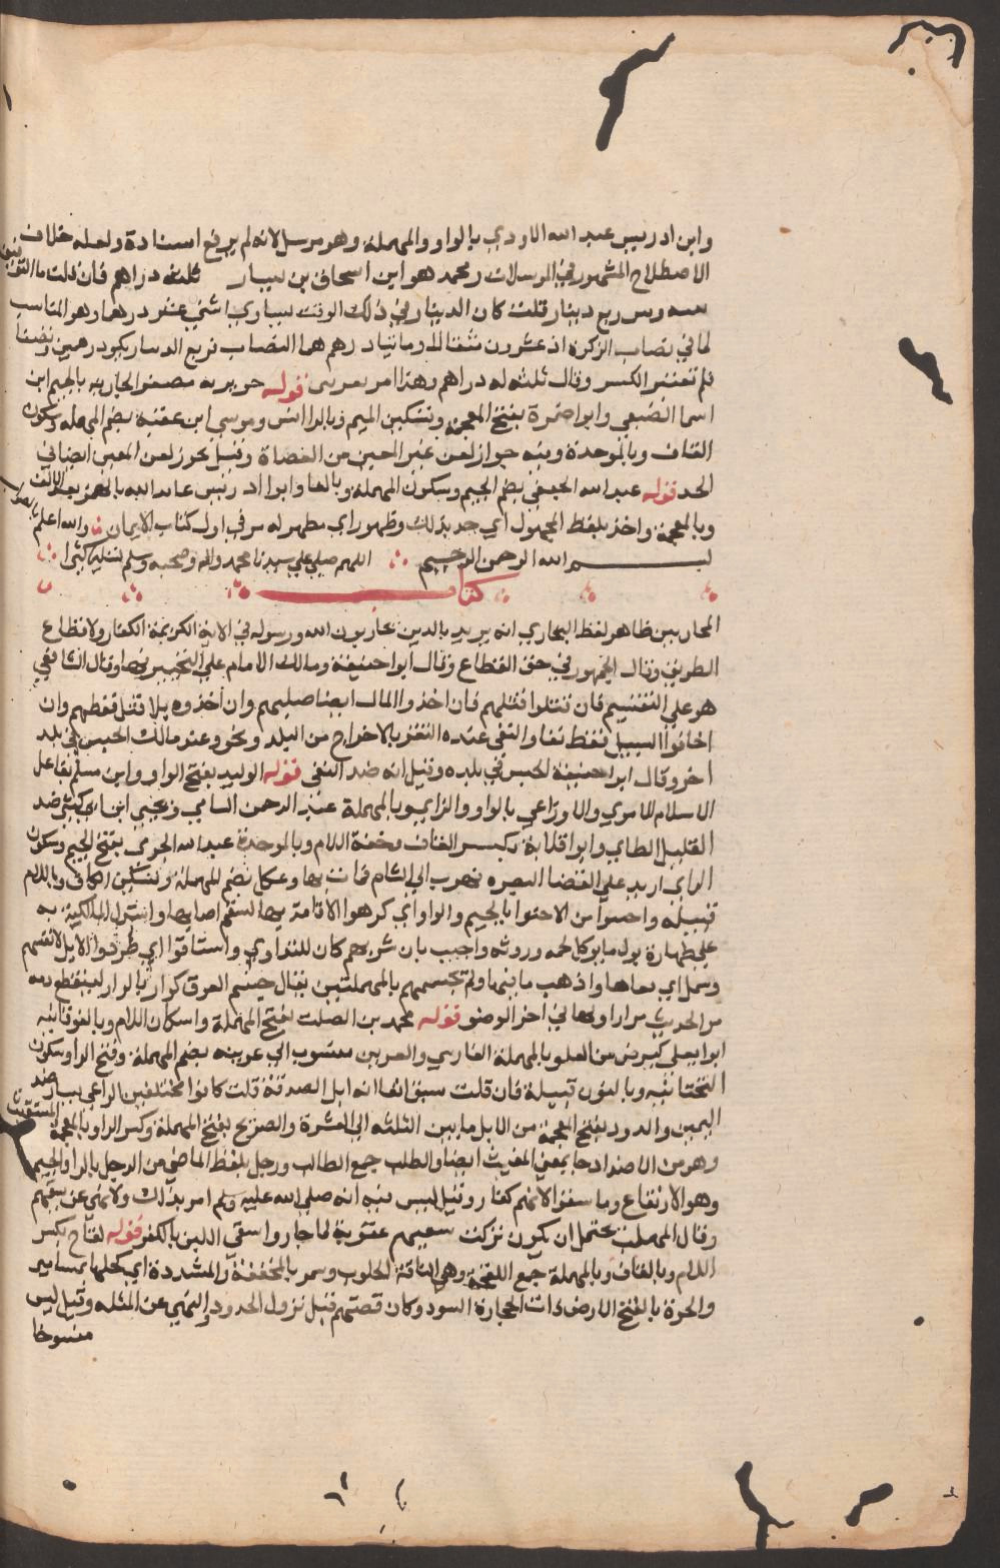 وابن ادريس عبد الله الاودي بالواو والمهملة وهو مرسل لانه لم يرفع اسناده ولعله خلاف
الاصطلاح المشهور في المرسلات ومحمد هو ابن اسحاق بن يسار ثلثه دراهم فان قلت ما التفيق
بينه وبين ربع دينار قلت كان الدينار في ذلك الوقت يساوي اثني عشر درهما وهو المناسب
لما في نصاب الزكوة اذ عشرون مثقالا ومائتا درهم هما النصاب فربع الدينار يكون درهمين ونصفا
فلم تعتبر الكسر وقال ثلثه دراهم وهذا امر قوله جويريه مصغر الجاريه بالجيم ابن
اسما الضبعي وابو اضمرة بفتح المعجمة وتسكين الميم وبالرا انس وموسى ابن عقبة بضم المهملة وسكون
القاف وبالموحدة وفيه جواز لعن غير المعين من العصاة وقيل يجوز لعن المعين ايضا في
الحد قوله عبد الله الجعفي بضم الجيم وسكون المهملة وبالفا وابو ادريس عايد الله بالهمز بعد الالف
وبالمعجمة واخذ بلفظ المجهول اي حد بذلك وطهور اي مطهر له مر في اول كتاب الايمان والله اعلم بالصواب
بسم الله الرحمن الرحيم اللهم صلي علي سيدنا محمد واله وصحبه وسلم تسليما كثيرا
كتاب
المحاربين ظاهر لفظ البخاري انه يريد بالذين يحاربون الله ورسوله في الاية الكريمة الكفار ولا قطاع
الطريق وقال الجمهور في حق القطاع وقال ابو احنيفة ومالك الامام علي التخيير فيها وقال الشافعي
هو علي التقسيم فان قتلوا قتلهم فان اخذوا المال ايضا صلبهم وان اخذوه بلا قتل قطعهم وان
اخافوا السبيل فقط نفا والنفي عنده التغريب الاخراج من البلد ونحوه وعند مالك الحبس في بلد
اخر وقال ابو احنيفة الحبس في بلده وقيل انه ضد النفي قوله الوليد بفتح الواو وابن مسلم بفاعل
الاسلام الاموي والاوزاعي بالواو والزاي وبالمهملة عبد الرحمن الشامي ويحيى ابن ابي كثير ضد
القليل الطاي وابو اقلابة بكسر القاف وخفة اللام وبالموحدة عبد الله الجرمي بفتح الجيم وسكون
الراي اريد علي القضا البصره فهرب الي الشام فمات بها وعكل بضم المهملة وتسكين الكاف وباللام
قبيله واجتووا من الاجتوا بالجيم والواو اي كرهوا الاقامة بها لسقم اصابهم واستدل المالكية به
علي طهارة بول ما يوكل لحمه وروثه واجيب بان شربهم كان للتداوي واستاقوا اي طردوا الابل لانفسهم
وسمل اي فقاها واذهب ما فيها ولم تحسمهم بالمهملتين يقال حسم العرق كواه بالنار لينقطع دمه
مر الحديث مرارا اولها في اخر الوضو قوله محمد بن الصلت بفتح المهملة واسكان اللام وبالفوقانيه
ابو ايعلى كيرضى من العلو بالمهملة الفارسي والعرنيين منسوب الي عرينه بضم المهملة وفتح الرا وسكون
التحتانيه وبالنون قبيلة فان قلت سبق انفا انه ابل الصدقة قلت كانوا مختلفين الراعي يسار ضد
اليمين والذود بفتح المعجمة من الابل ما بين الثلثه الي العشرة والصريخ بفتح المهملة وكسر الرا وبالمعجمة المستغيث
وهو من الاضداد جا بمعني المغيث ايضا والطلب جمع الطالب ورجل بلفظ الماضي من الرجل بالرا والجيم
وهو الارتفاع وما سقوا لانهم كفار وقيل ليس فيه انه صلي الله عليه وسلم امر بذلك ولا نهي عن سقيهم
وقال المهلب يحتمل ان يكون تركت سقيهم عقوبة لما جاروا سقي اللبن بالكفر قوله لقاح بكسر
اللام وبالقاف وبالمهملة جمع اللقحة وهي الناقة الحلوب وسمر بالمخففة والمشددة اي كحلها بمسامير
والحرة بالفتح الارض ذات الحجارة السود وكان قصتهم قبل نزول الحدود والنهي عن المثله وقيل ليس
منسوخا